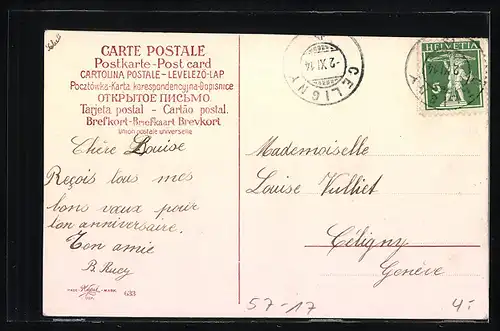 CARTE POSTALE
Postkarte - Post card
CARTOLINA POSTALE - LEVELEZŐ-LAP
Pocztówka - Karta korespondencyjna - Dopisnice
ОТКРЫТОЕ ПИСЬМО.
Tarjeta postal - Cartão postal.
Brefkort - Briefkaart Brevkort
Union postale universelle
Chère Louise
Reçois tous mes
bons vœux pour
ton anniversaire.
Ton amie
B. Rucy
633
CELIGNY
-2.XI.14
HELVETIA
5
Mademoiselle
Louise Vulliet
Céligny
Genève
57-17
4.-